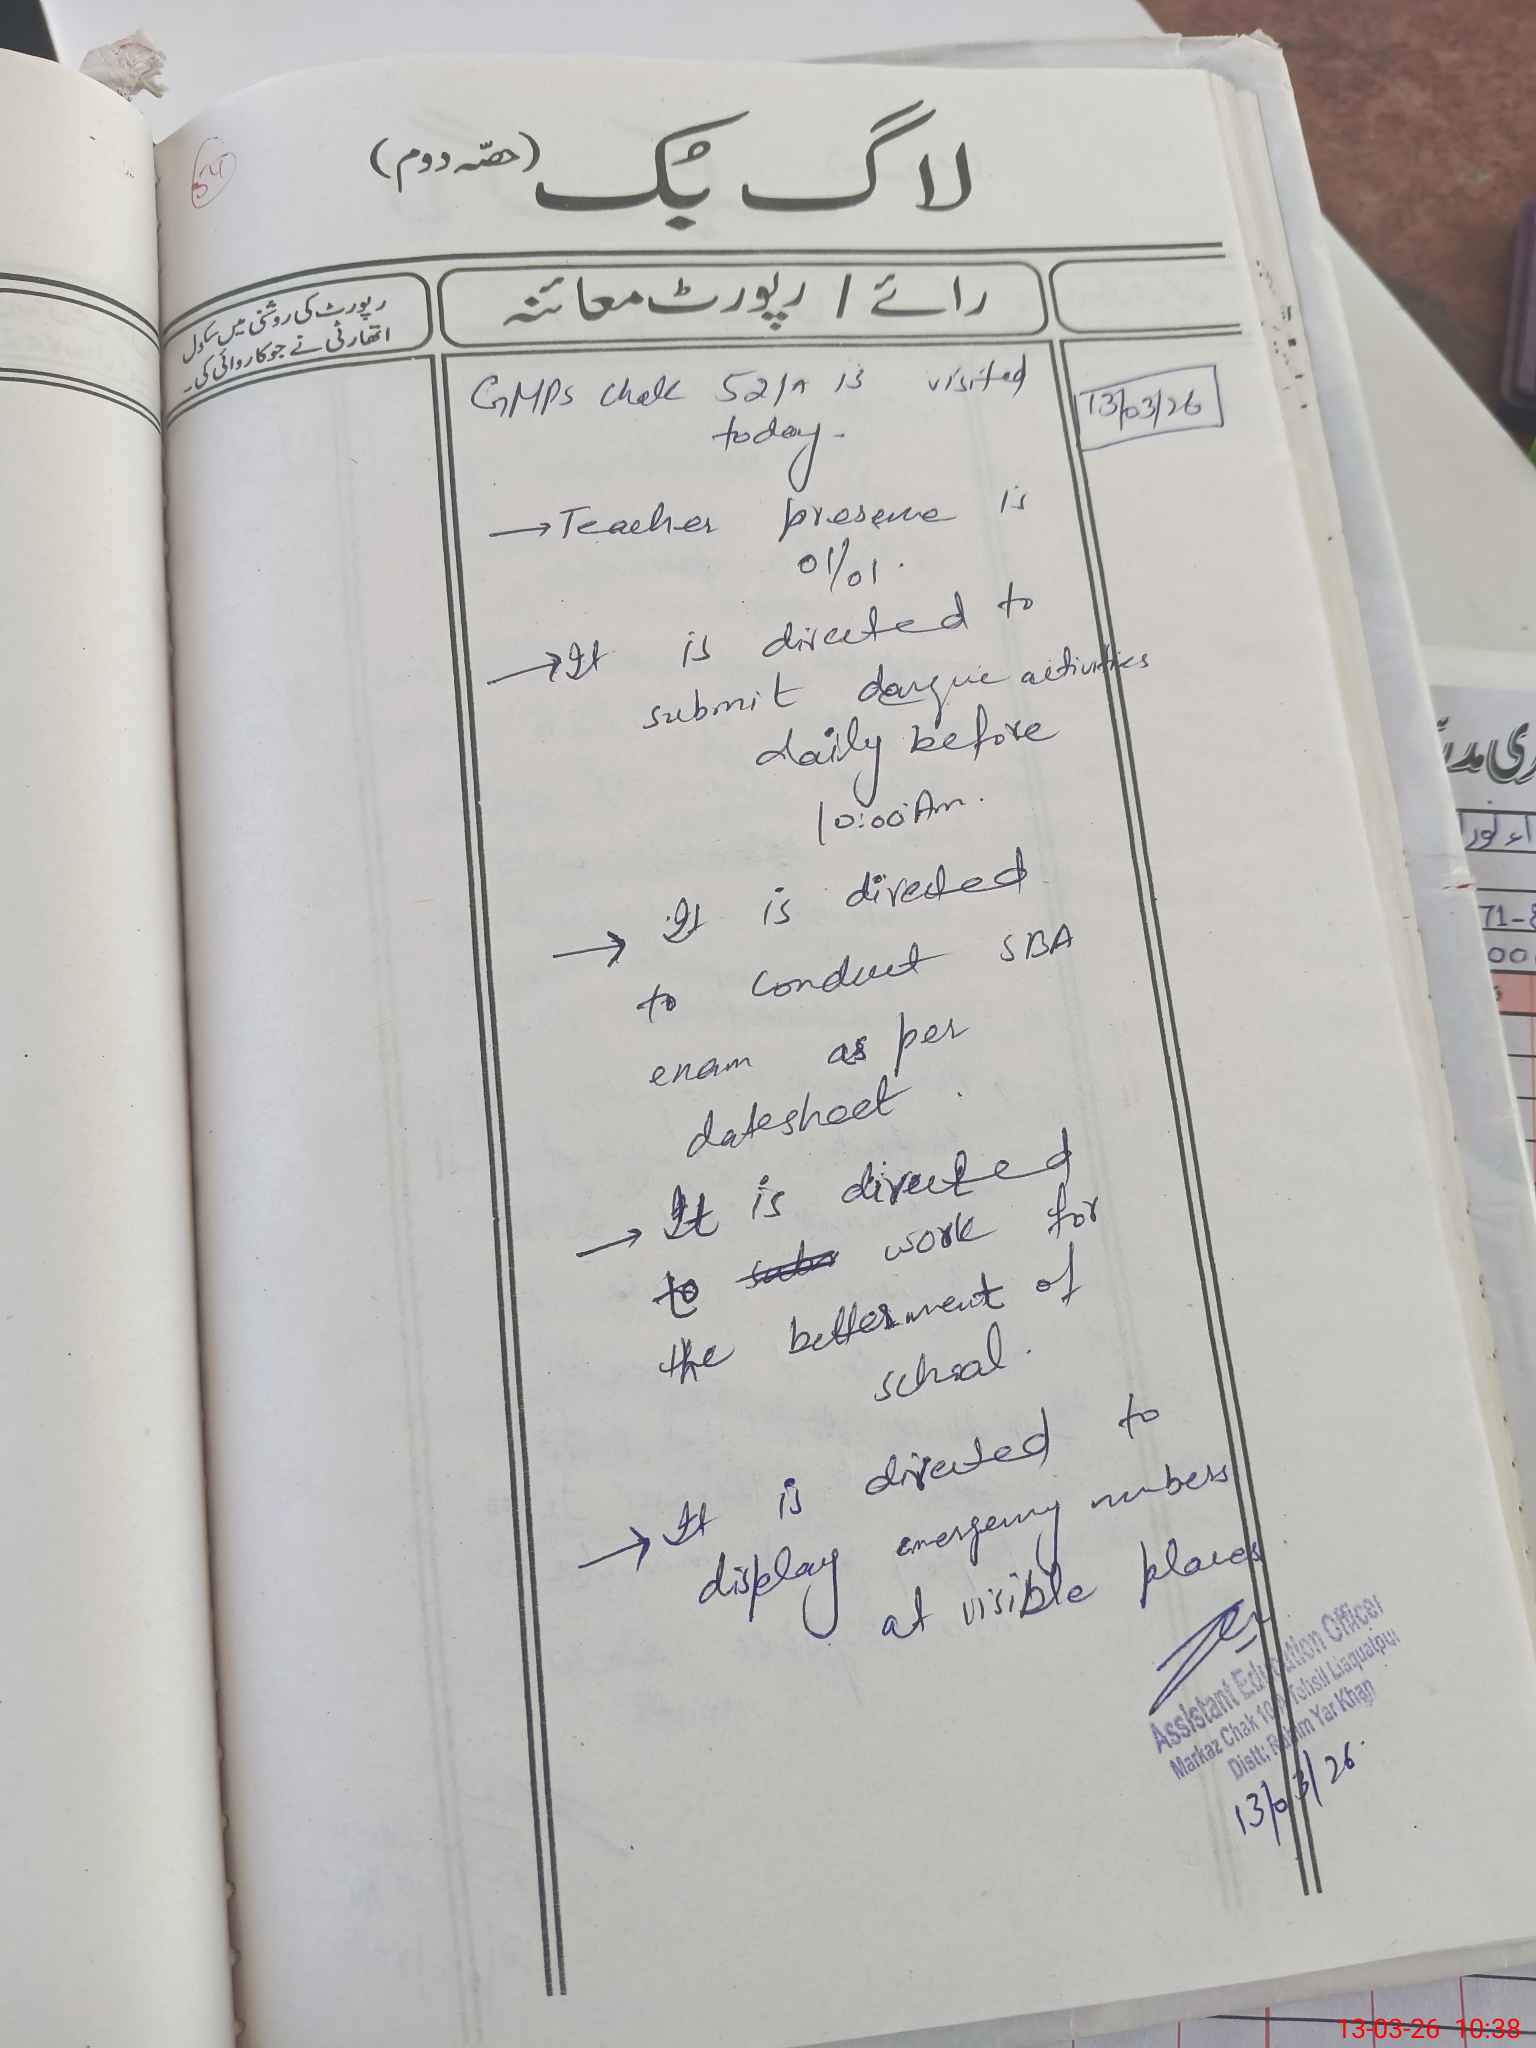 لاگ بُک (حصّہ دوم)
رپورٹ کی روشنی میں سکول
اتھارٹی نے جو کاروائی کی۔
رائے / رپورٹ معائنہ
GMPS chak 52/A is visited
today.
13/03/26
→ Teacher presence is
01/01.
→ It is directed to
submit dengue activities
daily before
10:00 Am.
→ It is directed
to conduct SBA
exam as per
datesheet.
→ It is directed
to work for
the betterment of
school.
→ It is directed to
display emergency numbers
at visible places
Assistant Education Officer
Markaz Chak Tehsil Liaquatpur
Distt: Rahim Yar Khan
13/03/26.
71-
00
13-03-26 10:38